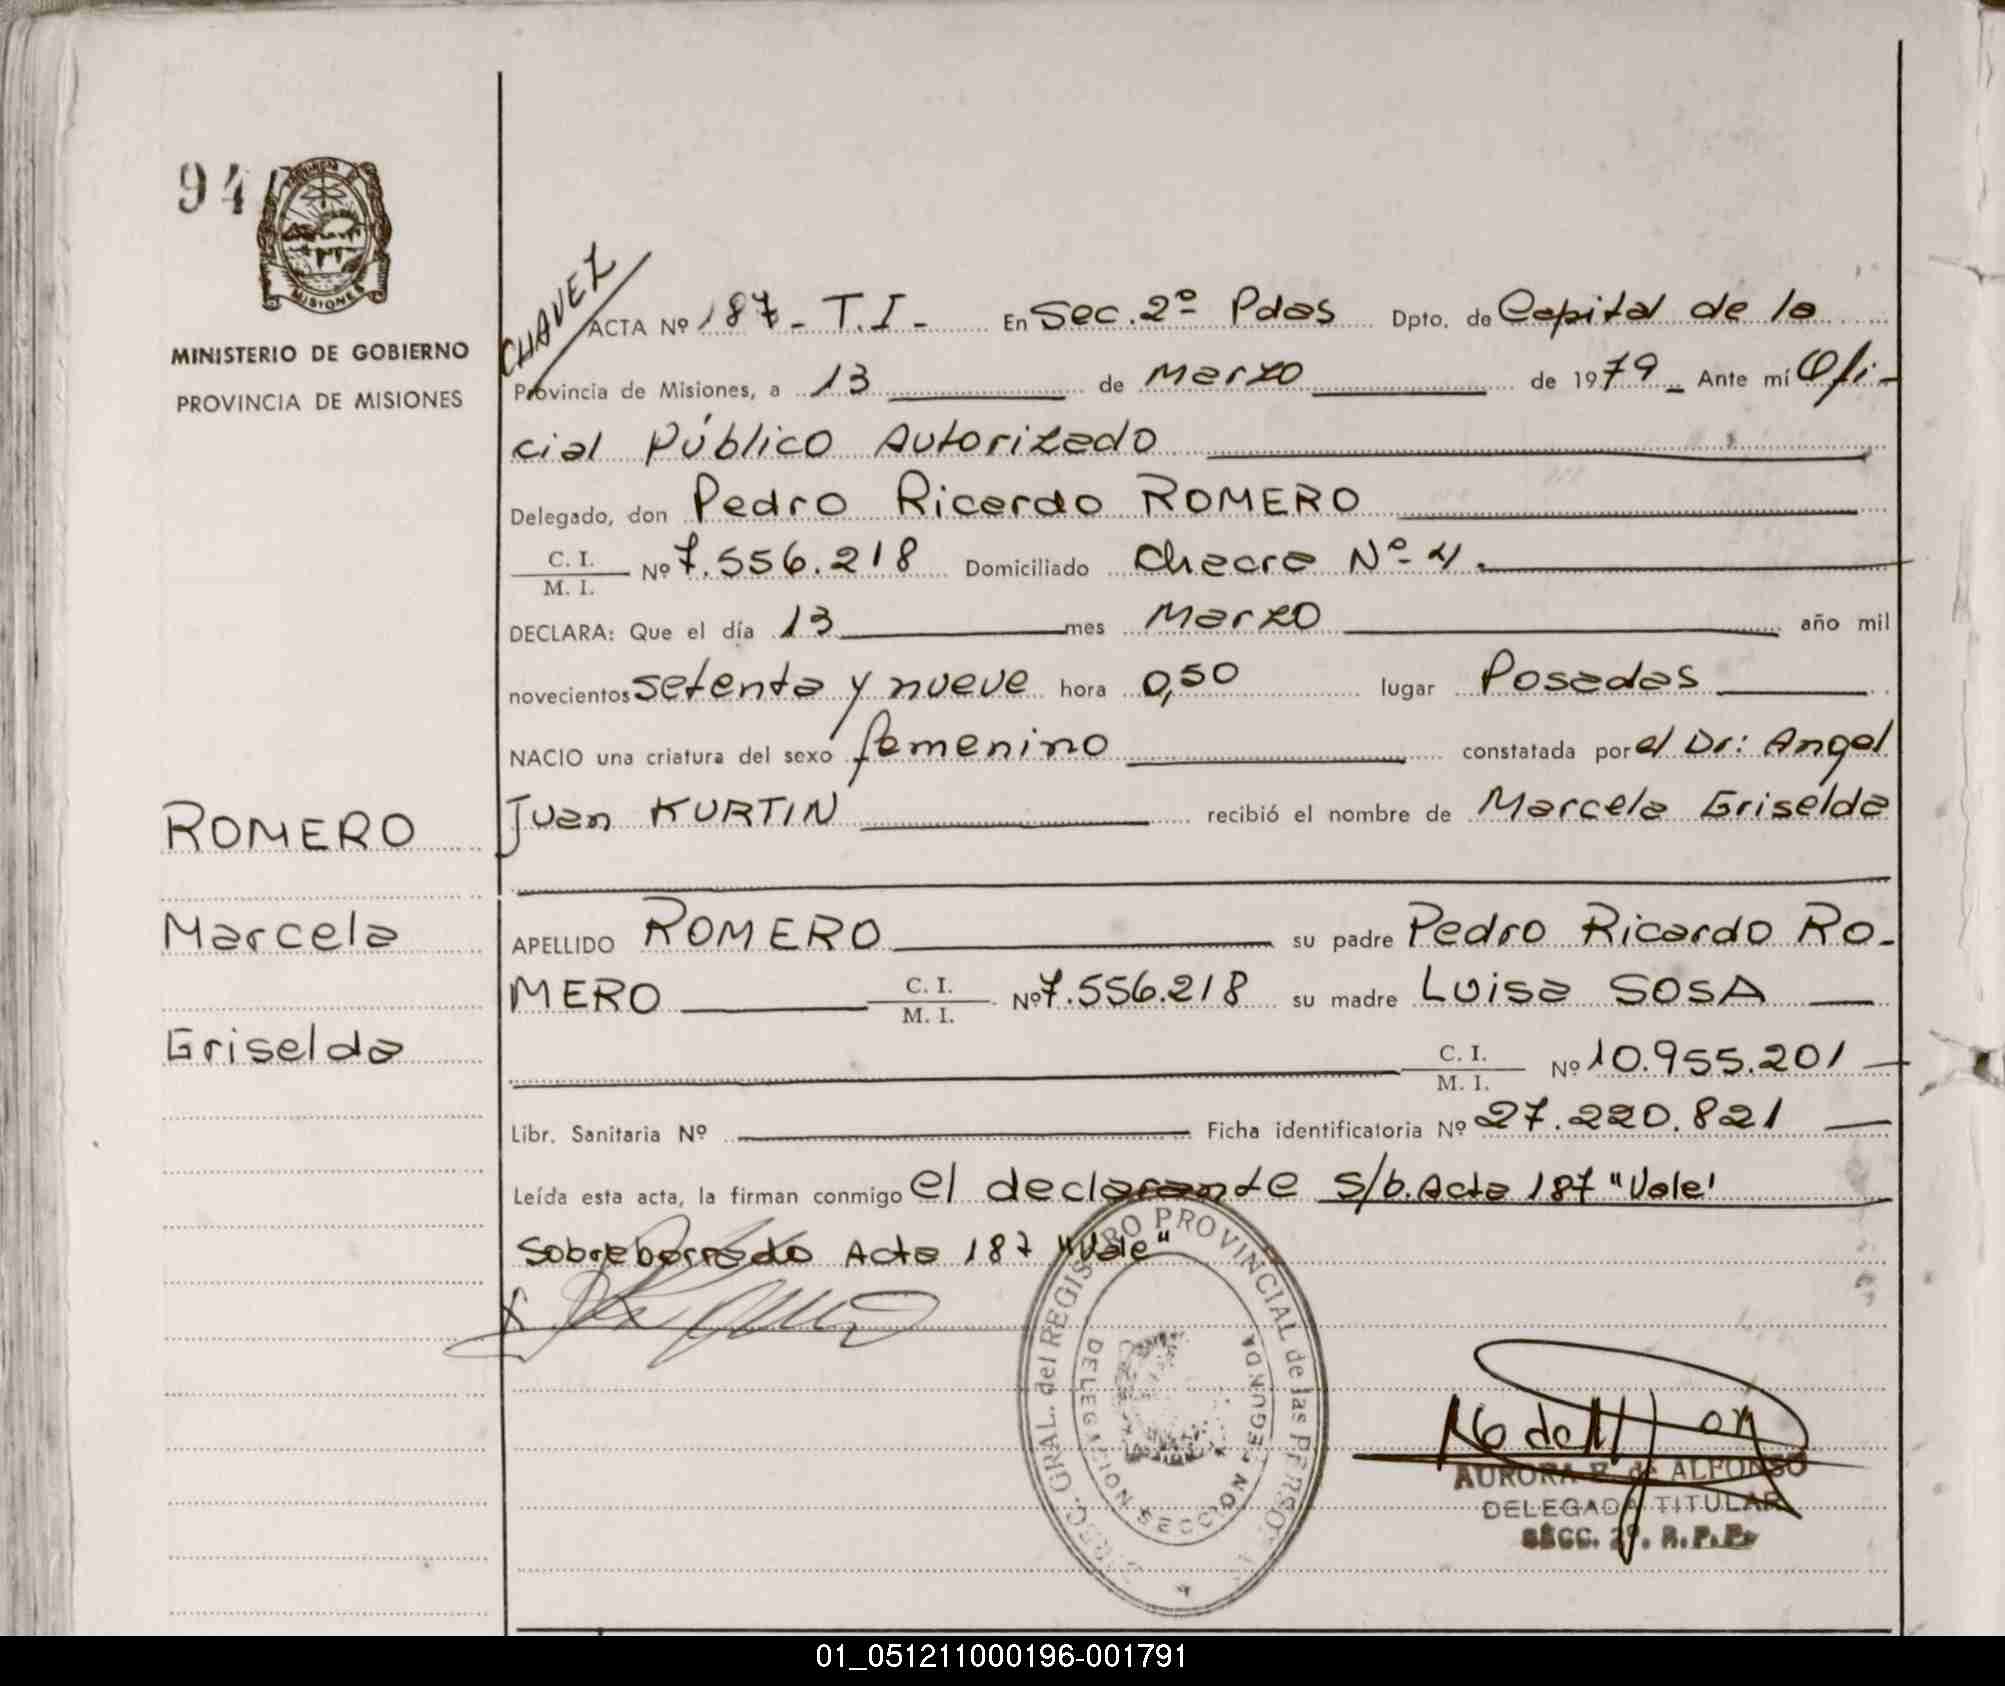 94
MISIONES
MINISTERIO DE GOBIERNO
PROVINCIA DE MISIONES
ROMERO
Marcela
Griselda
CHAVEZ
ACTA Nº 187 - T.I - En Sec. 2º Pdas Dpto. de Capital de la
Provincia de Misiones, a 13 de Marzo de 1979 Ante mí Ofi-
cial Público Autorizado
Delegado, don Pedro Ricardo ROMERO
C. I.
M. I. Nº 7.556.218 Domiciliado Chacra Nº 4.
DECLARA: Que el día 13 mes Marzo año mil
novecientos setenta y nueve hora 0,50 lugar Posadas
NACIO una criatura del sexo femenino constatada por el Dr: Angel
Juan KURTIN recibió el nombre de Marcela Griselda
APELLIDO ROMERO su padre Pedro Ricardo RO-
MERO C. I.
M. I. Nº 7.556.218 su madre Luisa SOSA
C. I.
M. I. Nº 10.955.201
Libr. Sanitaria Nº Ficha identificatoria Nº 27.220.821
Leída esta acta, la firman conmigo el declarante s/b. Acta 187 "Vale'
Sobreborrado Acta 187 "Vale"
GRAL. del REGISTRO PROVINCIAL de las PERSO
DELEGACION SECCION SEGUNDA
AURORA de ALFONSO
DELEGADA TITULAR
SECC. 2º. R.P.P.
01_051211000196-001791